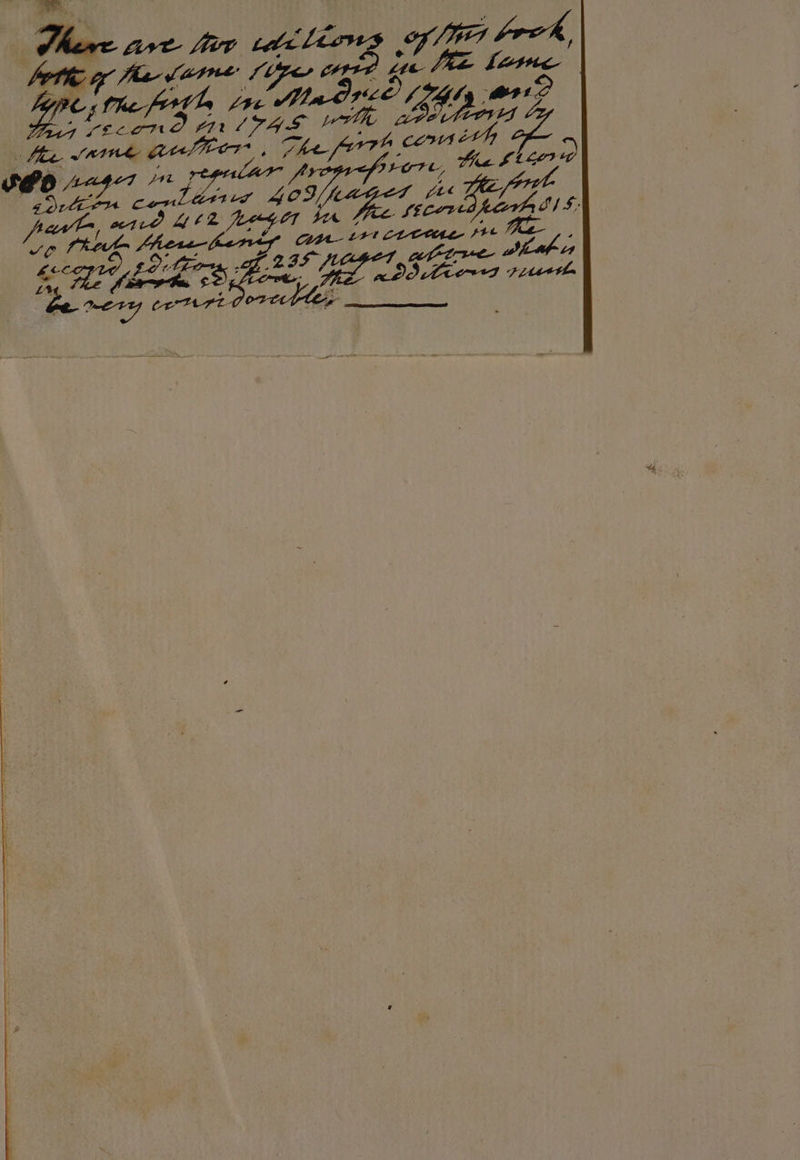 There are two editions of this book,
both of the same size and in the same
type, the first in Madrid 174 and
this second in 1745 with additions by
the same author, The first consists of
pages in regular progression, the second
edition contains 403 pages in the first
part, and 412 pages in the second part 815:
so that there being an increase in the
second edition of 235 pages above what is
in the first edition, the additions must
be very considerable,